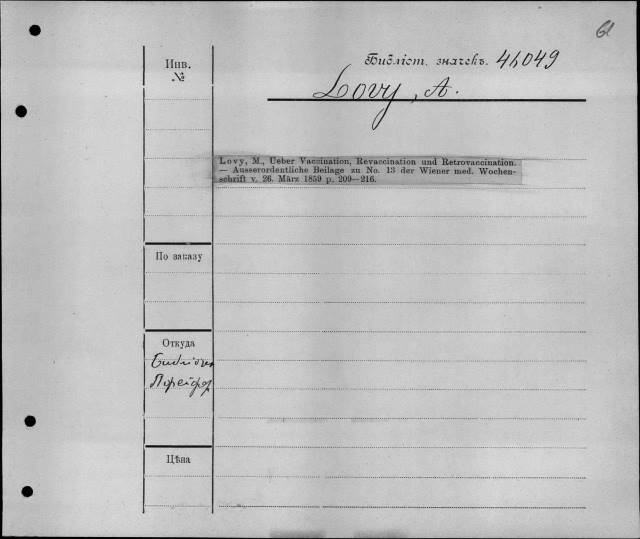 61
Инв.
№
Библіот. значекъ. 46049
Lovy, A.
Lovy, M., Ueber Vaccination, Revaccination und Retrovaccination.
— Ausserordentliche Beilage zu No. 13 der Wiener med. Wochen-
schrift v. 26. März 1859 p. 209—216.
По заказу
Откуда
Цѣна